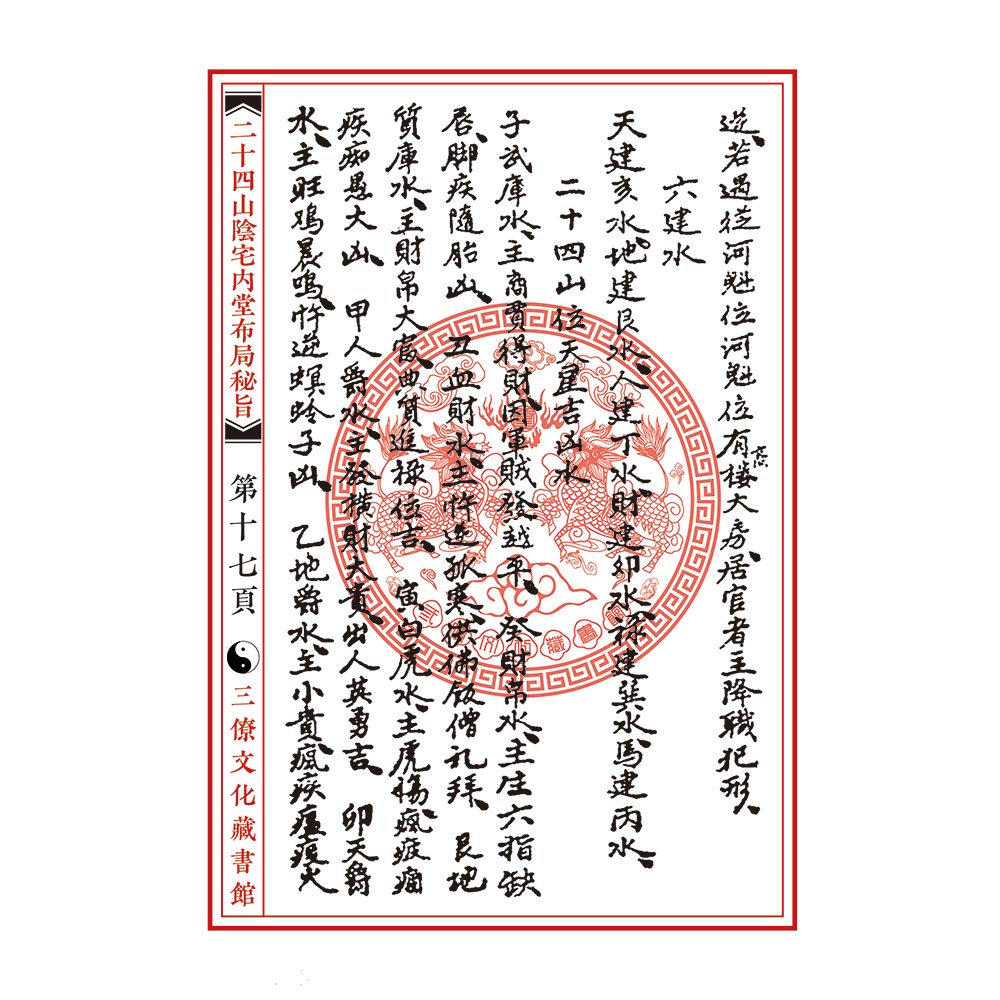 逆、若遇從河魁位河魁位有樓大房、居官者主降職犯形、
六建水
天建亥水、地建艮水、人建丁水、財建卯水、祿建巽水馬建丙水、
二十四山位天星吉凶水
子武庫水、主商賈得財、因軍賊發越平、癸財帛水、主生六指缺
唇、脚疾隨胎凶、丑血財水、主忤逆孤寒、供佛飯僧礼拜、艮地
質庫水、主財帛大富、典質進祿位吉、寅白虎水、主虎傷、瘋疲痼
疾痴愚大凶、甲人爵水、主發橫財大貴、出人英勇吉、卯天爵
水、主旺鷄晨鳴、忤逆螟蛉子凶、乙地爵水、主小貴、瘋疾瘟疫火
《二十四山陰宅内堂布局秘旨》
第十七頁
三僚文化藏書館